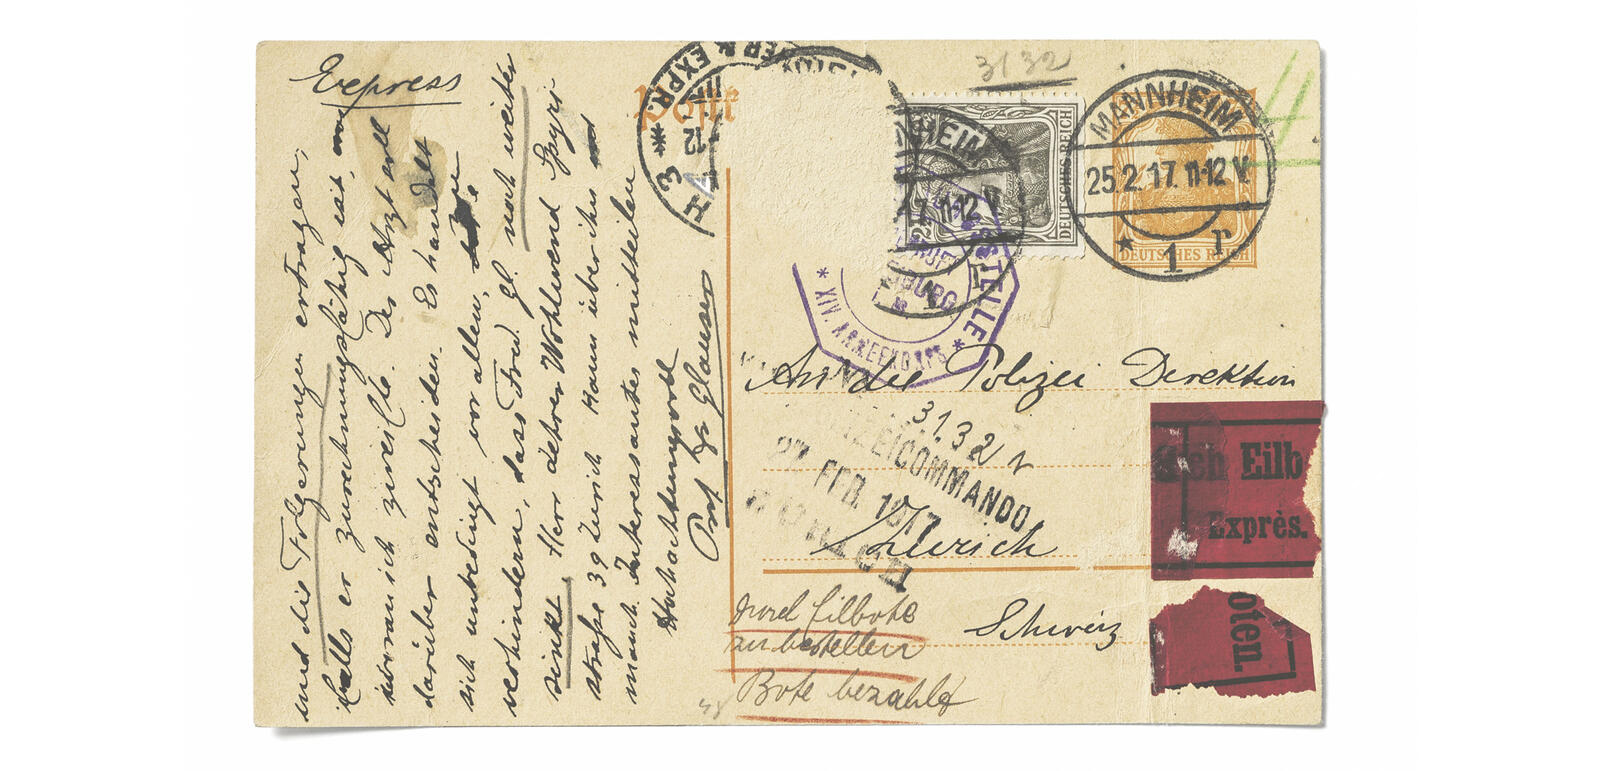 Express
und die Folgerungen ertragen,
falls er zurechnungsfähig ist,
woran ich zweifle. Der Arzt soll
darüber entscheiden. Es handelt
sich unbedingt vor allem,
verhindern, dass Frd. Gl. noch weiter
sinkt. Herr Wohlwend Spyri
straße 39 Zürich kann über ihn
manch Interessantes mitteilen
Hochachtungsvoll
Prof. Glauser
Post
3132
MANNHEIM
25.2.17. 11-12 V.
* 1 r
DEUTSCHES REICH
DEUTSCHES REICH
HEIM
17. 11-12 V
& EXPR.
STELLE
XIV. ARMEEKORPS
An die Polizei Direktion
3132
POLIZEICOMMANDO
27. FEB. 1917
ZÜRICH
Zürich
Schweiz
durch Eilbote
zu bestellen
Bote bezahlt
Eilb
Exprès.
oten.